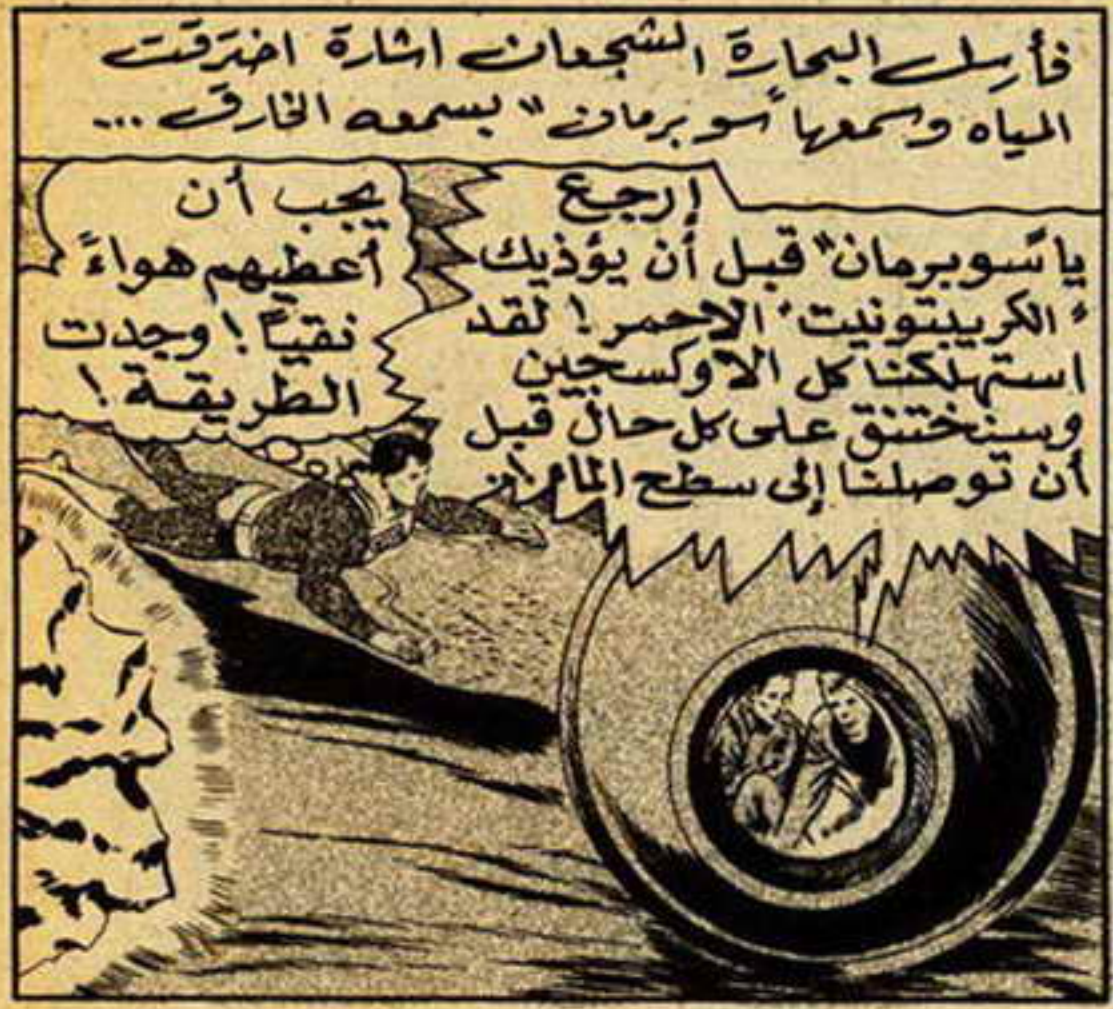 فأرسل البحارة الشجعان اشارة اخترقت
المياه وسمعها "سوبرمان" بسمعه الخارق ...
إرجع
يا "سوبرمان" قبل أن يؤذيك
"الكريبتونيت" الاحمر! لقد
استهلكنا كل الاوكسجين
وسنختنق على كل حال قبل
أن توصلنا إلى سطح الماء!..
يجب أن
أعطيهم هواءً
نقيّاً! وجدت
الطريقة!